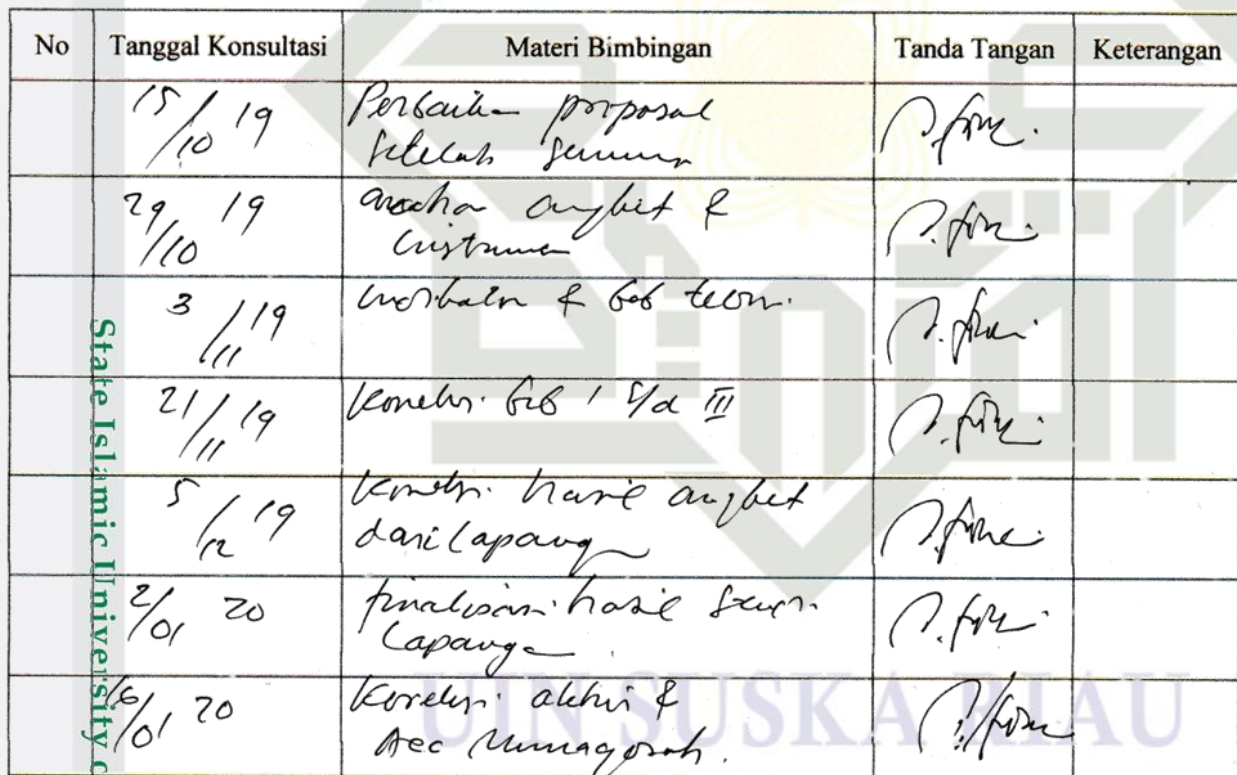 No Tanggal Konsultasi Materi Bimbingan Tanda Tangan Keterangan
15/10 19 Perbaikan proposal
setelah seminar
29/10 19 angket &
Instrumen
3/11 19 & bab teori.
21/11 19 Koreksi bab I s/d III
5/12 19 Koreksi hasil angket
dari lapangan
2/01 20 finalisasi hasil
Lapangan.
16/01 20 Koreksi akhir &
Acc Munaqosah.
State Islamic University
UIN SUSKA RIAU